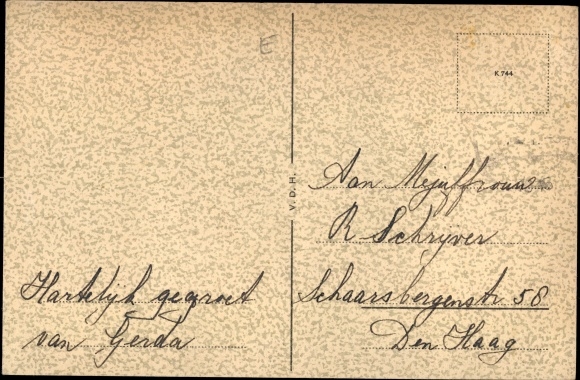 E
K 744
V. D. H.
Hartelijk gegroet
van Gerda
Aan Mejuffrouw
R Schrijver
Schaarsbergenstr 58
Den Haag